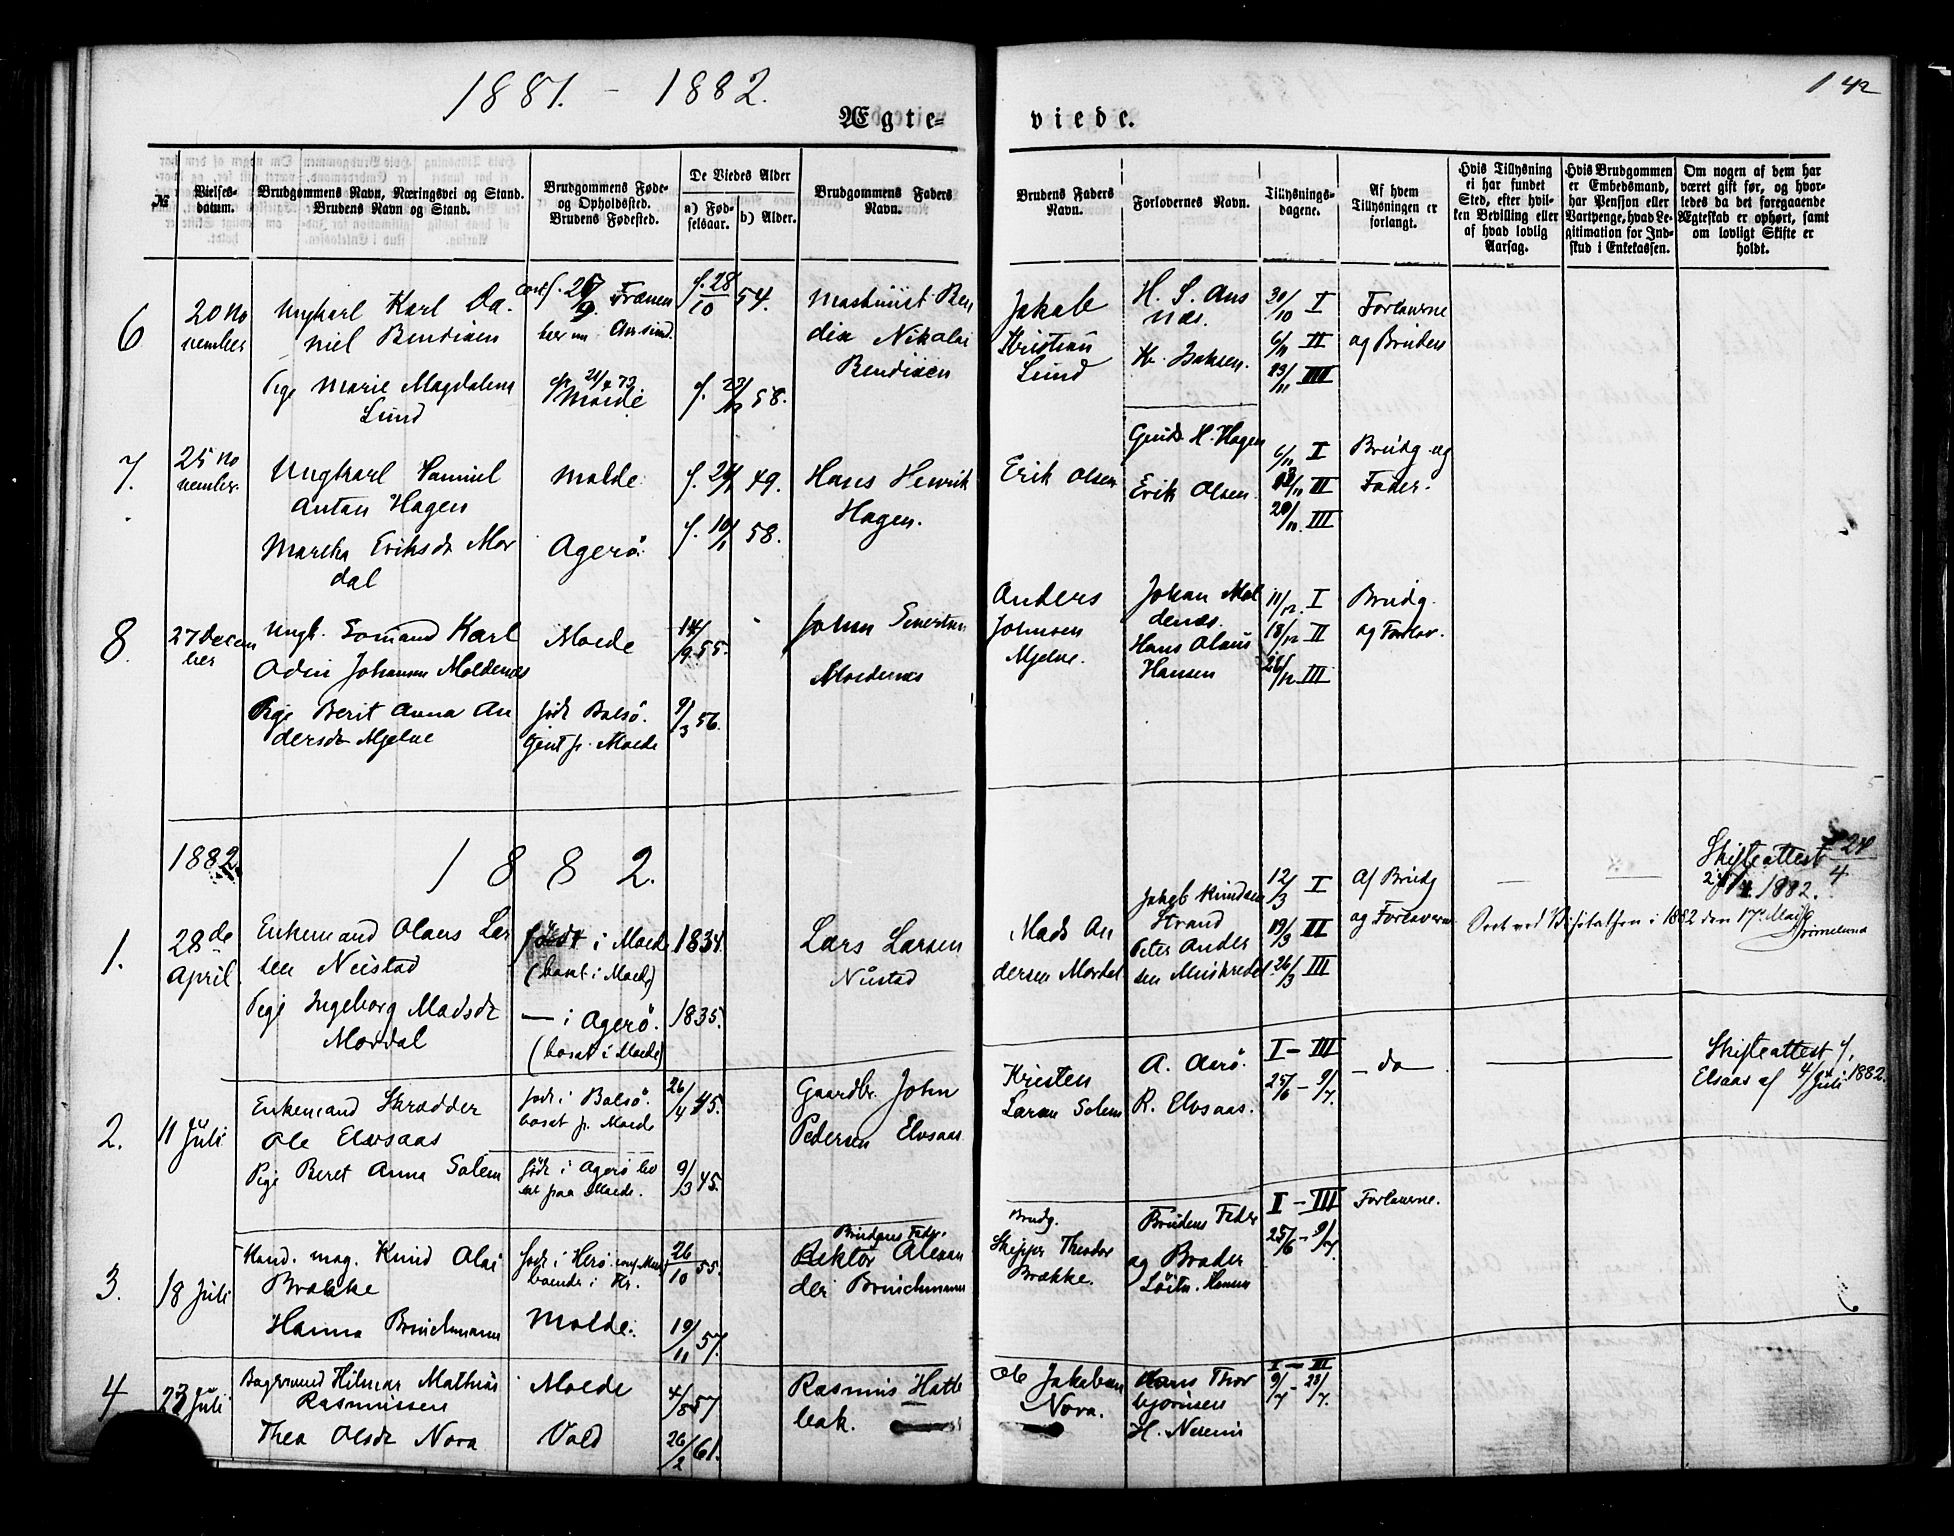 1881. - 1882.
142
Ægte-
viede.
№
Vielses-
datum.
Brudgommens Navn, Næringsvei og Stand.
Brudens Navn og Stand.
Brudgommens Føde-
og Opholdssted.
Brudens Fødested.
De Viedes Alder
a) Fød-
selsaar.
b) Alder.
Brudgommens Faders
Navn.
Brudens Faders
Navn.
Forlovernes Navn.
Tillysnings-
dagene.
Af hvem
Tillysningen er
forlangt.
Hvis Tillysning
ei har fundet
Sted, efter hvil-
ken Bevilling eller
af hvad lovlig
Aarsag.
Hvis Brudgommen
er Embedsmand,
har Pension eller
Vartpenge, hvad Le-
gitimation for Ind-
skud i Enkekassen.
Om nogen af dem har
været gift før, og hvor-
ledes da det foregaaende
Ægteskab er ophørt, samt
om lovligt Skifte er
holdt.
6
20 No
vember
Ungkarl Karl Da
niel Bendixen
Pige Marie Magdalena
Lund
Molde
f. 28/10 54.
f. 58.
Ben
dix Nikolai
Bendixen
Jakob
Kristian
Lund
H. S. Aus
næs.
Kr. Isaksen.
30/10 I
6/11 II
13/11 III
Forloverne
og Bruden
7.
25 No
vember.
Ungkarl Samuel
Anton Hagen
Martha Eriksdr Mor
dal
Molde
Agerö.
f. 49.
f. 10/1 58.
Hans Henrik
Hagen.
Erik Olsen
H. Hagen
Erik Olsen
6/11 I
13/11 II
20/11 III
Brudg og
Fader.
8.
27 Decem
ber
Ungk. Sömand Karl
Odin Johansen Moldenæs
Pige Berit Anna An
dersdr Mjelve
Molde
född Bolsö.
14/9 55.
9/3 56.
John
Moldenæs
Anders
Johnsen
Mjelve.
Johan Mol
denæs.
Hans Olaus
Hansen
11/12 I
18/12 II
26/12 III
Brudg.
og Forlov.
1882.
1 8 8 2.
1.
28de
April
Enkemand Olaus Lar
sen Nustad
Pige Ingeborg Madsdr
Mordal
född i Molde
(bosat i Molde)
— i Agerö.
(bosat i Molde)
1834.
1835.
Lars Larsen
Nustad
Mads An
dersen Mordal
Jakob Knudsen
Strand
Peter Ander
sen
12/3 I
19/3 II
26/3 III
Af Brudg
og Forloverne
Skifteattest
24/4 1882.
24/4
Seet ved Visitatsen i 1882 den 17de Mai
2.
11 Juli
Enkemand Skrædder
Ole Elvsaas
Pige Beret Anna Solem
född i Bolsö.
bosat p. Molde
född i Agerö bo
sat paa Molde.
26/4 45.
9/3 45.
Gaardbr. John
Pedersen Elvsaas
Kristen
Larsen Solem
A. Aarö.
R. Elvsaas.
I – III
25/6 – 9/7.
– do –
Skifteattest f.
Elsaas af 4/Juli 1882.
3.
18 Juli
Kand. mag. Knud Olai
Brække
Hanna Brinchmann
född i Herö
boende i Kr.
Molde.
26/10 55.
19/11 57.
Brudens Fader.
Rektor Alexan
der Brinchmann
Brudg.
Skipper Theodor
Brække.
Brudens Fader
og Broder
Löitn. Hansen
I – III
25/6 – 9/7.
Forloverne.
4
23 Juli
Bagersvend Hilmar Mathias
Rasmussen
Thea Olsdr Nora
Molde
Vold
4/8 57
26/2 61.
Rasmus Hatle
bak.
Ole Jakobsen
Nora.
Hans Thor
björnsen
I – III
9/7 – 23/7.